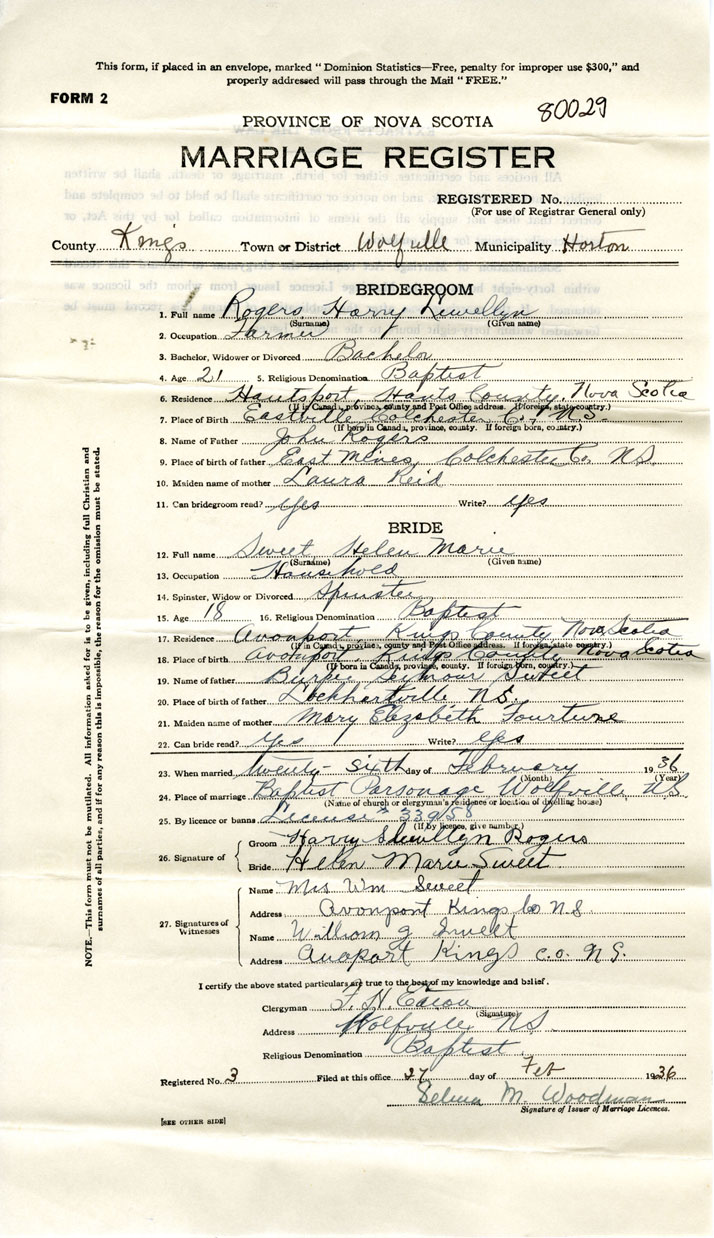 This form, if placed in an envelope, marked "Dominion Statistics—Free, penalty for improper use $300," and
properly addressed will pass through the Mail "FREE."
FORM 2
80029
PROVINCE OF NOVA SCOTIA
MARRIAGE REGISTER
REGISTERED No.
(For use of Registrar General only)
County Kings Town or District Wolfville Municipality Horton
BRIDEGROOM
1. Full name Rogers Harry Llewellyn
(Surname) (Given name)
2. Occupation Farmer
3. Bachelor, Widower or Divorced Bachelor
4. Age 21 5. Religious Denomination Baptist
6. Residence Hantsport, Hants County, Nova Scotia
(If in Canada, province, county and Post Office address. If foreign, state country.)
7. Place of Birth Eastville Colchester Co., N.S.
(If born in Canada, province, county. If foreign born, country.)
8. Name of Father John Rogers
9. Place of birth of father East Mines, Colchester Co. N.S.
10. Maiden name of mother Laura Reid
11. Can bridegroom read? yes Write? yes
BRIDE
12. Full name Sweet Helen Marie
(Surname) (Given name)
13. Occupation Household
14. Spinster, Widow or Divorced Spinster
15. Age 18 16. Religious Denomination Baptist
17. Residence Avonport, Kings County Nova Scotia
(If in Canada, province, county and Post Office address. If foreign, state country.)
18. Place of birth Avonport, Kings County, Nova Scotia
(If born in Canada, province, county. If foreign born, country.)
19. Name of father Burpee Seymour Sweet
20. Place of birth of father Lockhartville N.S.
21. Maiden name of mother Mary Elezabeth Fourtune
22. Can bride read? yes Write? yes
23. When married twenty-sixth day of February 1936
(Month) (Year)
24. Place of marriage Baptist Parsonage Wolfville N.S.
(Name of church or clergyman's residence or location of dwelling house)
25. By licence or banns License # 33958
(If by licence, give number)
26. Signature of
Groom Harry Llewellyn Rogers
Bride Helen Marie Sweet
27. Signatures of Witnesses
Name Mrs Wm Sweet
Address Avonport Kings Co N.S.
Name William G Sweet
Address Avoport Kings C.O. N.S.
I certify the above stated particulars are true to the best of my knowledge and belief.
Clergyman F. H. Eaton
(Signature)
Address Wolfville NS
Religious Denomination Baptist
Registered No. 3 Filed at this office 27 day of Feb 1936
Selma M. Woodman
Signature of Issuer of Marriage Licences.
[SEE OTHER SIDE]
NOTE.—This form must not be mutilated. All information asked for is to be given, including full Christian and
surnames of all parties, and if for any reason this is impossible, the reason for the omission must be stated.